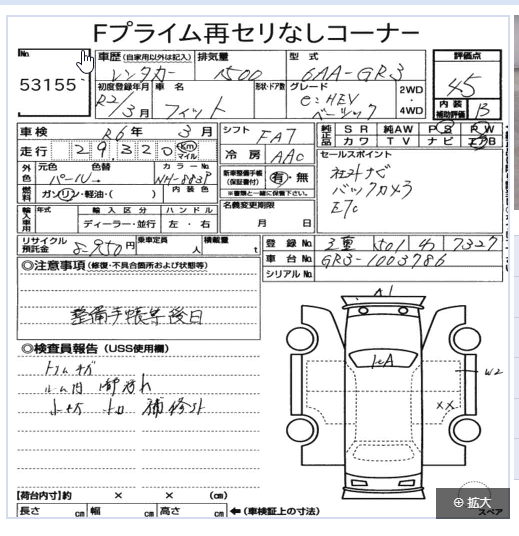 Fプライム再セリなしコーナー
No.
53155
車歴 (自家用以外は記入) レンタカー
排気量 1500
型式 6AA-GR3
評価点 4.5
初度登録年月 R2/3月
車名 フィット
形状・ドア数
グレード e:HEV ベーシック
2WD・4WD
内装補助評価 B
車検 R6年 3月
シフト FA7
純正品 SR 純AW PS PW
カワ TV ナビ エアB
走行 29,320 km マイル
冷房 AAC
セールスポイント
社外ナビ
バックカメラ
ETC
外色 元色 パール→ 色替 カラーNo. WH-883P
新車整備手帳(保証書付) 有・無
※書類と一緒に保管下さい。
燃料 ガソリン・軽油・( )
内装色
名義変更期限
月 日
輸入車用 年式 輸入区分 ハンドル
ディーラー・並行 左・右
リサイクル預託金 円
乗車定員 人
積載量 t
登録No. 三重 501 わ 7327
車台No. GR3-1003786
シリアルNo.
◎注意事項 (修復・不具合箇所および状態等)
整備手帳等後日
◎検査員報告 (USS使用欄)
A1
W2
XX
【荷台内寸】約 × × (cm)
長さ cm 幅 cm 高さ cm ←(車検証上の寸法)
スペア
拡大